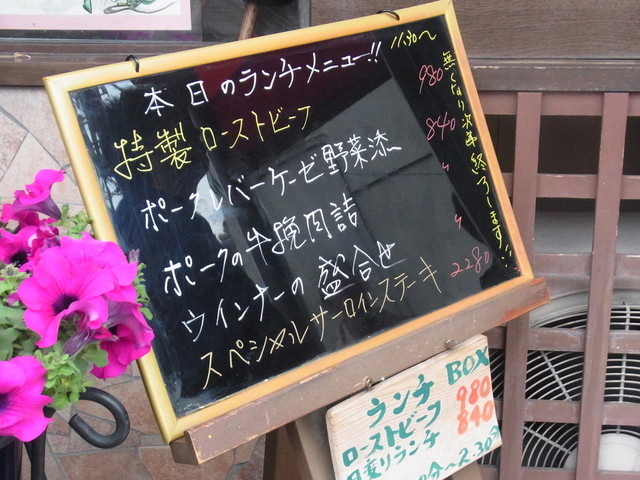 本日のランチメニュー!!
11:30〜
特製ローストビーフ 980
ポークレバーケーゼ野菜添 840
ポークの牛挽肉詰 〃
ウインナーの盛合せ 〃
スペシャルサーロインステーキ 2280
無くなり次第終了します!!
ランチBOX
ローストビーフ 980
日変りランチ 840